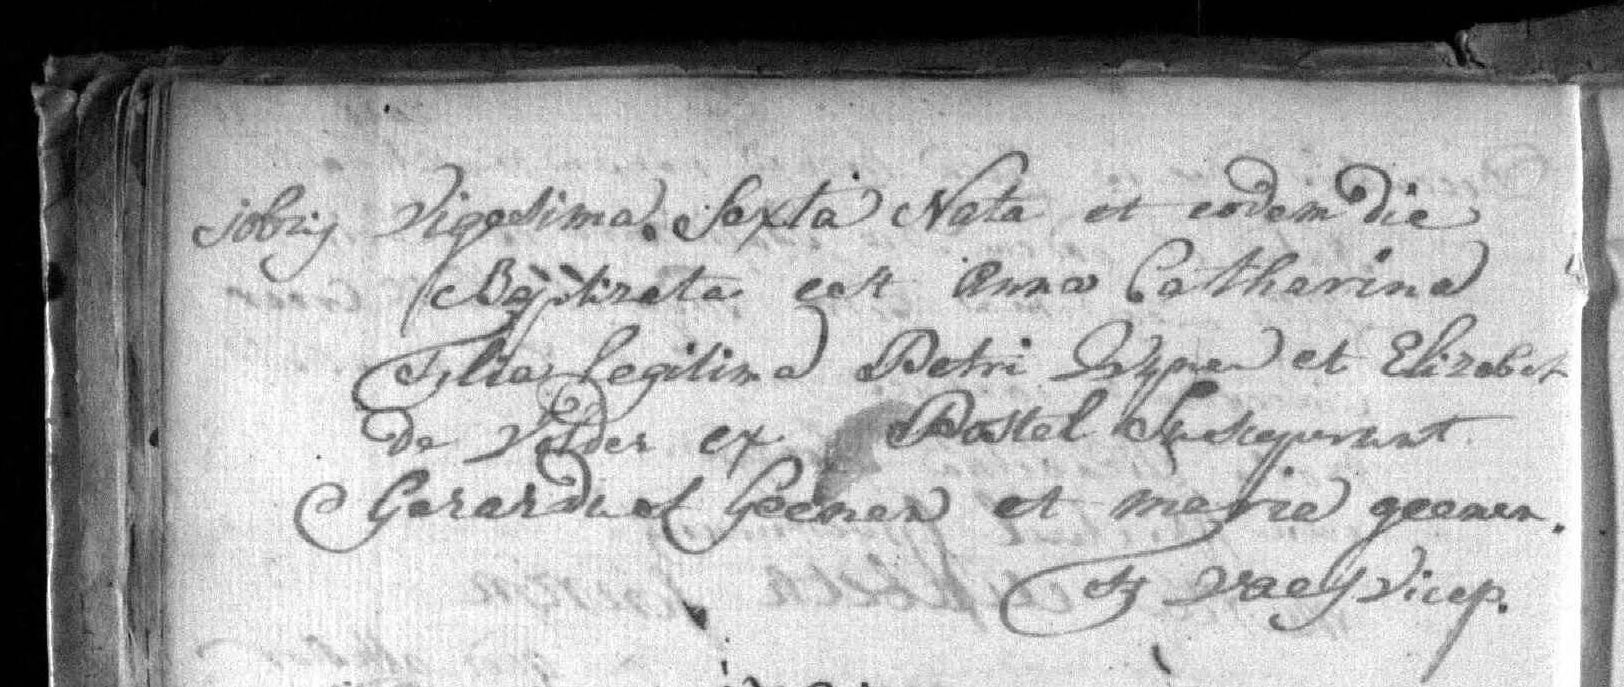 Vigesima Sexta Nata et eodem die
Baptizata est Anna Catharina
Filia Legitima Petri et Elizabet
de Volder ex Postel Susceperunt
Gerardus Geenen et maria geenen.
Vicep.